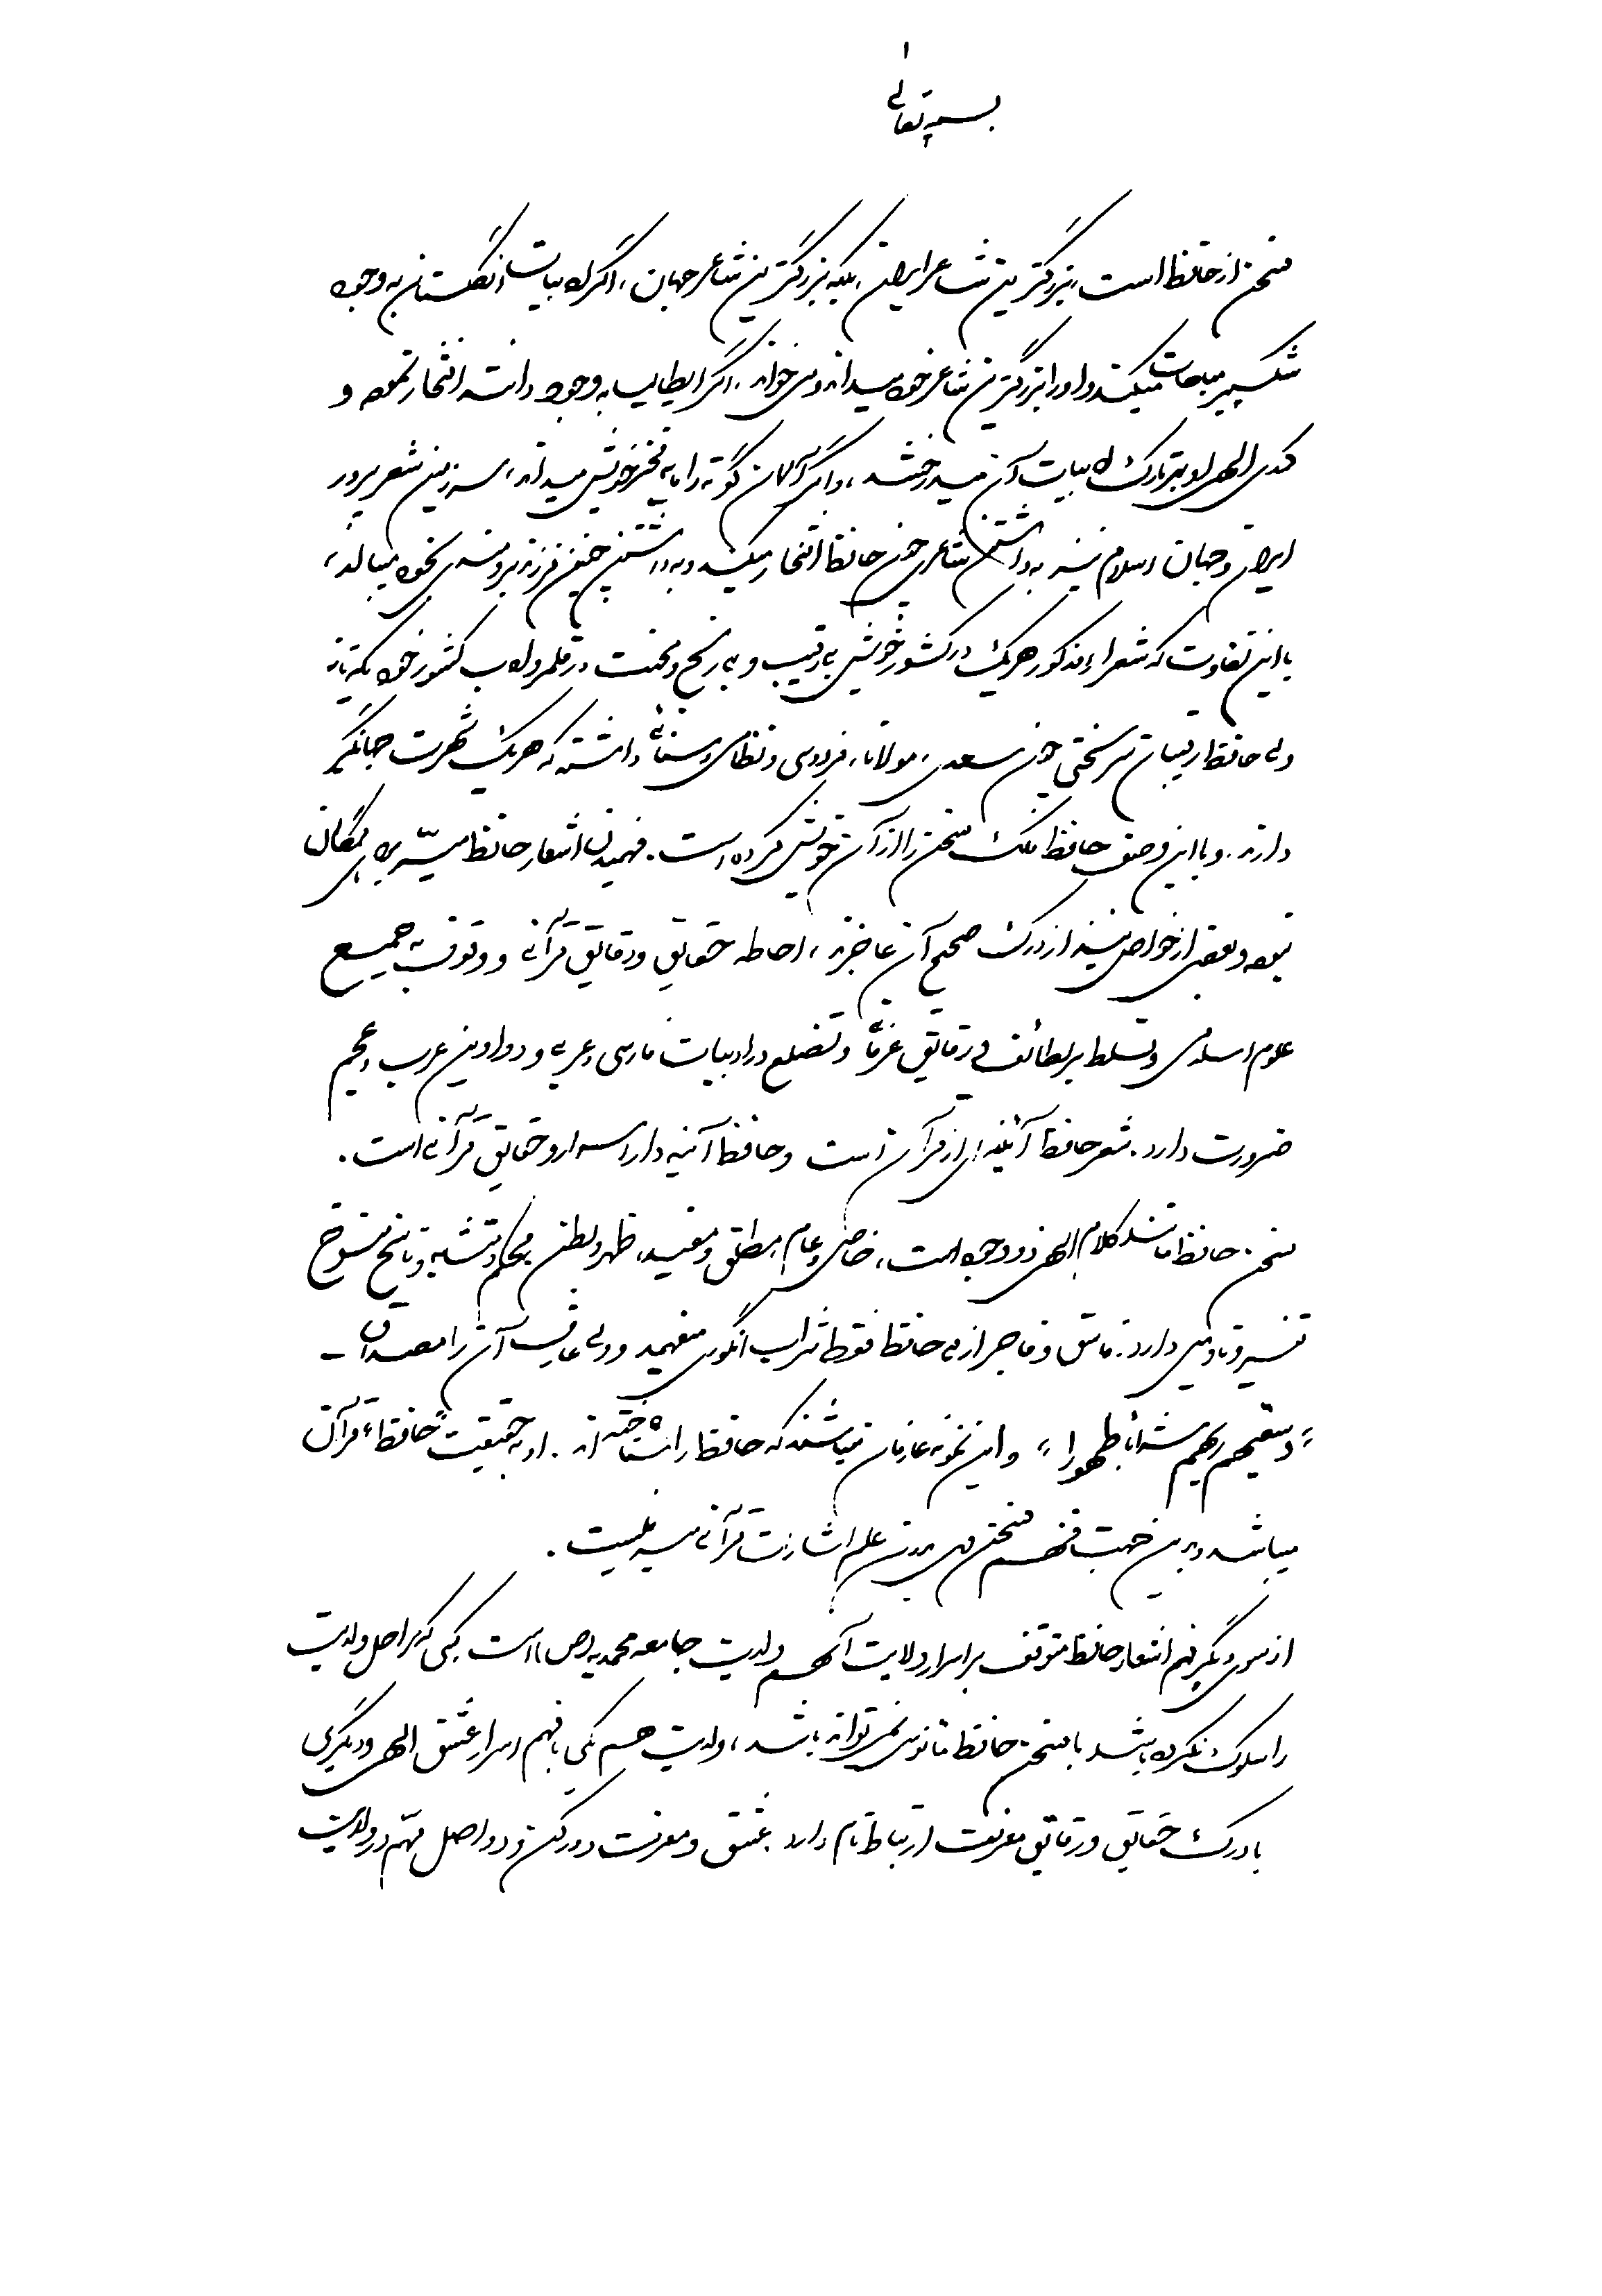 ۱
بسمه تعالی
سخن از حافظ است، بزرگترین شاعر ایران، بلکه بزرگترین شاعر جهان، اگر ادبیات انگلستان به وجود
شکسپیر مباهات میکند و او را بزرگترین شاعر خود میداند و می‌خواند، اگر ایطالیا به وجود دانته افتخار نموده و
کمدی الهی او بر تارک ادبیات آن میدرخشد، و اگر آلمان گوته را مایه فخر خویش میداند، سرزمین شعر پرور
ایران و جهان اسلام نیز به داشتن شاعری چون حافظ افتخار میکند و به داشتن چنین فرزند برومندی بخود میبالد،
با این تفاوت که شعراء مذکور هریک در کشور خویش بی رقیب و بی رنج و محنت در قلمرو ادب کشور خود یکه تازند
ولی حافظ رقیبان سرسختی چون سعدی، مولانا، فردوسی و نظامی و سنائی داشته که هریک شهرت جهانگیر
دارند. و با این وصف حافظ ملک سخن را از آن خویش کرده است. فهمیدن اشعار حافظ میسّر برای همگان
نبوده و بعضی از خواص نیز از درک صحیح آن عاجزند، احاطه حقایق و دقایق قرآنی و وقوف به جمیع
علوم اسلامی و تسلط بر لطائف و رقایق عرفاً و تضلع در ادبیات فارسی و عربی و دواوین عرب و عجم
ضرورت دارد. شعر حافظ آئینه‌ای از قرآن است و حافظ آئینه دار اسرار و حقایق قرآنی است.
سخن حافظ مانند کلام الهی ذو وجوه است، خاص و عام، مطلق و مقید، ظهر و بطن، محکم و متشابه و ناسخ منسوخ
تفسیر و تاویل دارد. فاسق و فاجر از می حافظ فقط شراب انگوری میفهمد و ولی عارف آن را مصداق -
«وسقیهم ربهم شراباً طهورا» و این نمونه عارفان میباشند که حافظ را شناخته اند. او به حقیقت حافظ قرآن
میباشد و بدین جهت فهم سخن وی بدون علم اشارت قرآنی میسر نیست.
از سوی دیگر فهم اشعار حافظ متوقف بر اسرار ولایت آنهم ولایت جامعه محمدیه (ص) است کسی که مراحل ولایت
را سلوک نکرده باشد با سخن حافظ مانوس نمی تواند باشد، ولایت هم یکی با فهم اسرار عشق الهی و دیگری
با درک حقایق و رقایق معرفت ارتباط تام دارد. عشق و معرفت دو رکن و دو اصل مهم در ولایت